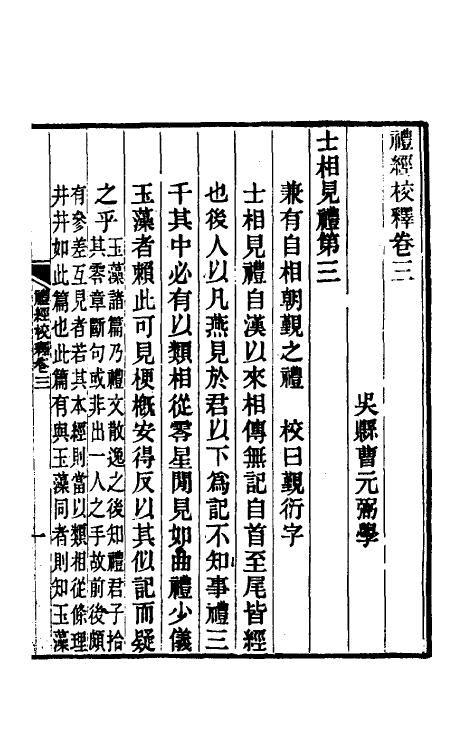 禮經校釋卷三
吳縣曹元弼學
士相見禮第三
兼有自相朝覲之禮　校曰覲衍字
士相見禮自漢以來相傳無記自首至尾皆經
也後人以凡燕見於君以下為記不知事禮三
千其中必有以類相從零星閒見如曲禮少儀
玉藻者賴此可見梗概安得反以其似記而疑
之乎玉藻諸篇乃禮文散逸之後知禮君子拾
其零章斷句或非出一人之手故前後頗
有參差互見者若其本經則當以類相從條理
井井如此篇也此篇有與玉藻同者則知玉藻
禮經校釋卷三
一